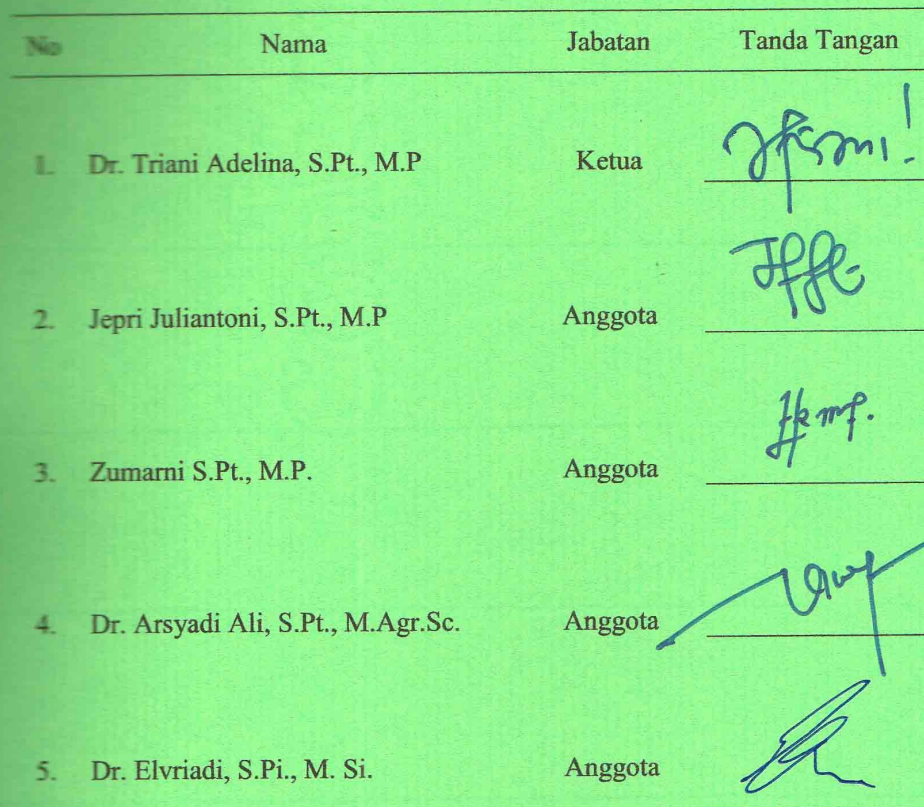 No Nama Jabatan Tanda Tangan
1. Dr. Triani Adelina, S.Pt., M.P Ketua
2. Jepri Juliantoni, S.Pt., M.P Anggota
3. Zumarni S.Pt., M.P. Anggota
4. Dr. Arsyadi Ali, S.Pt., M.Agr.Sc. Anggota
5. Dr. Elvriadi, S.Pi., M. Si. Anggota